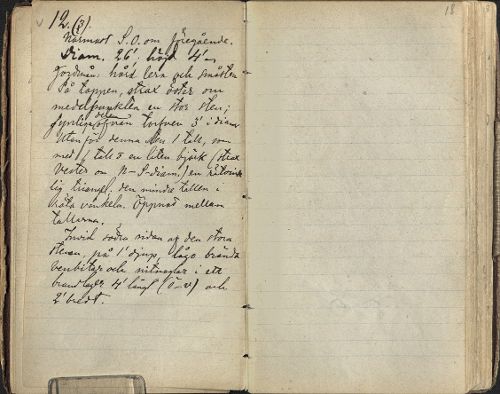 12. (3).
18
Närmast S.O. om föregående.
Diam. 26', höjd 4'.
Jordmån: hård lera och småsten
På toppen, strax öster om
medelpunkten en stor sten;
synlig ofvan torfven 3' i diam.
Utanför denna 1 tall, som
med 1 tall o en liten björk (strax
vester om N-S-diam.) en rätvink-
lig triangel, den mindre tallen i
räta vinkeln. Öppnad mellan
tallarna.
Invid södra sidan af den stora
stenen, på 1' djup, lågo brända
benbitar och nitnaglar i ett
brandlager 4' långt (Ö-V) och
2' bredt.